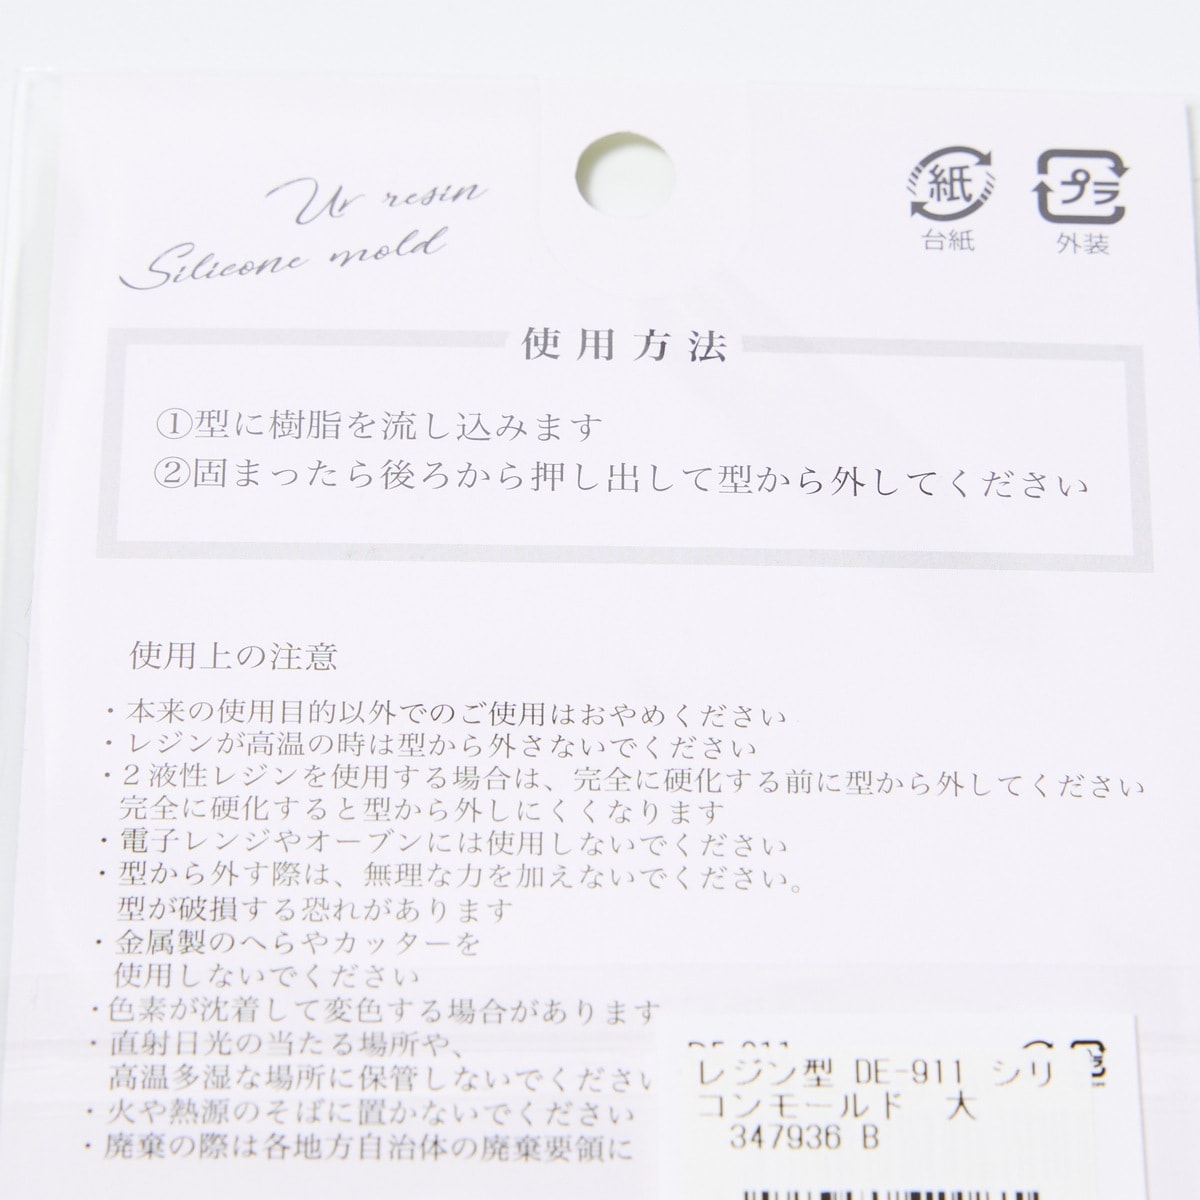 Ur resin
Silicone mold
紙
台紙
プラ
外装
使用方法
①型に樹脂を流し込みます
②固まったら後ろから押し出して型から外してください
使用上の注意
・本来の使用目的以外でのご使用はおやめください
・レジンが高温の時は型から外さないでください
・2液性レジンを使用する場合は、完全に硬化する前に型から外してください
完全に硬化すると型から外しにくくなります
・電子レンジやオーブンには使用しないでください
・型から外す際は、無理な力を加えないでください。
型が破損する恐れがあります
・金属製のへらやカッターを
使用しないでください
・色素が沈着して変色する場合があります
・直射日光の当たる場所や、
高温多湿な場所に保管しないでください
・火や熱源のそばに置かないでください
・廃棄の際は各地方自治体の廃棄要領に
レジン型 DE-911 シリ
コンモールド 大
347936 B